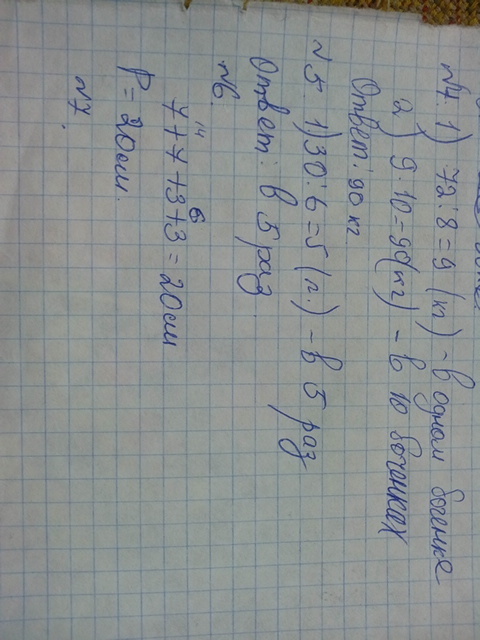 №4. 1) 72:8=9 (кг) - в одном боченке
2) 9·10=90(кг) - в 10 боченках
Ответ: 90 кг.
№5. 1) 30:6=5 (г.) - в 5 раз
Ответ: в 5 раз.
№6.
14 6
7+7+3+3=20см
P=20см.
№7.